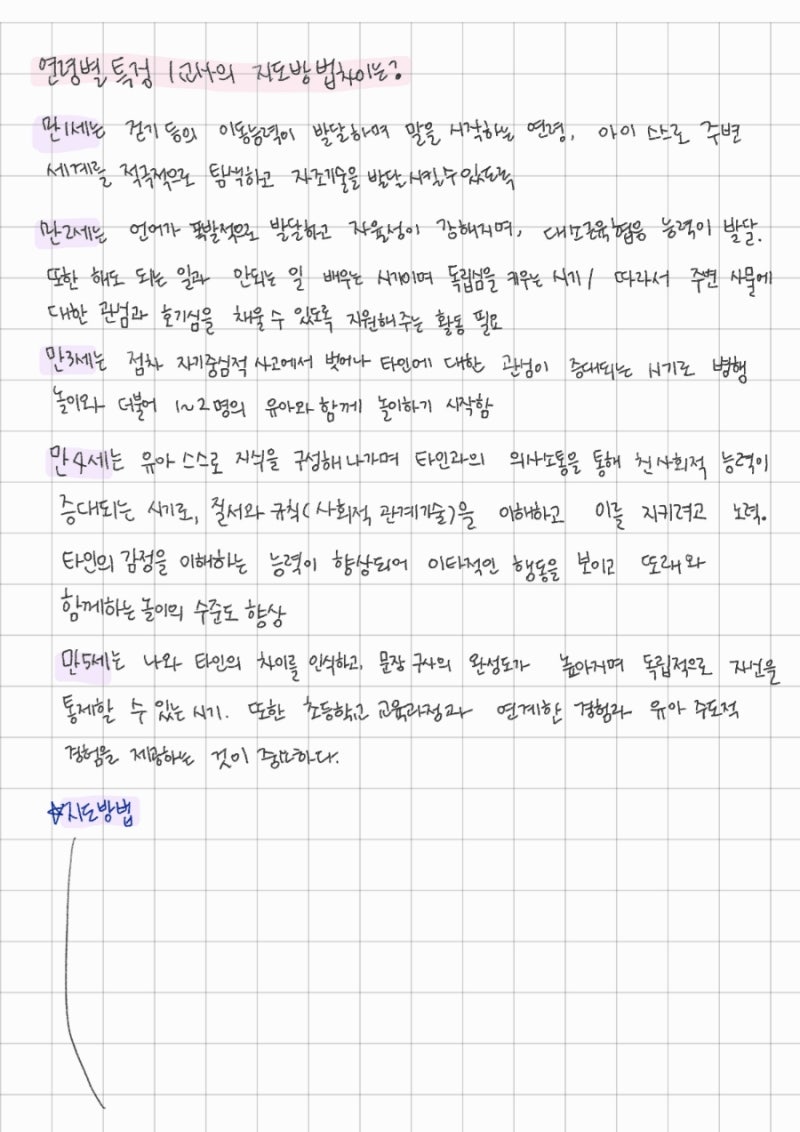 연령별 특징 / 교사의 지도방법차이는?
만1세는 걷기 등의 이동능력이 발달하며 말을 시작하는 연령, 아이 스스로 주변
세계를 적극적으로 탐색하고 자조기술을 발달시킬 수 있도록
만2세는 언어가 폭발적으로 발달하고 자율성이 강해지며, 대소근육협응 능력이 발달.
또한 해도 되는 일과 안되는 일 배우는 시기이며 독립심을 키우는 시기 / 따라서 주변 사물에
대한 관심과 호기심을 채울 수 있도록 지원해주는 활동 필요
만3세는 점차 자기중심적 사고에서 벗어나 타인에 대한 관심이 증대되는 시기로 병행
놀이와 더불어 1~2명의 유아와 함께 놀이하기 시작함
만4세는 유아 스스로 지식을 구성해 나가며 타인과의 의사소통을 통해 친사회적 능력이
증대되는 시기로, 질서와 규칙(사회적 관계기술)을 이해하고 이를 지키려고 노력.
타인의 감정을 이해하는 능력이 향상되어 이타적인 행동을 보이고 또래와
함께하는 놀이의 수준도 향상
만5세는 나와 타인의 차이를 인식하고, 문장 구사의 완성도가 높아지며 독립적으로 자신을
통제할 수 있는 시기. 또한 초등학교 교육과정과 연계한 경험과 유아 주도적
경험을 제공하는 것이 중요하다.
☆지도방법